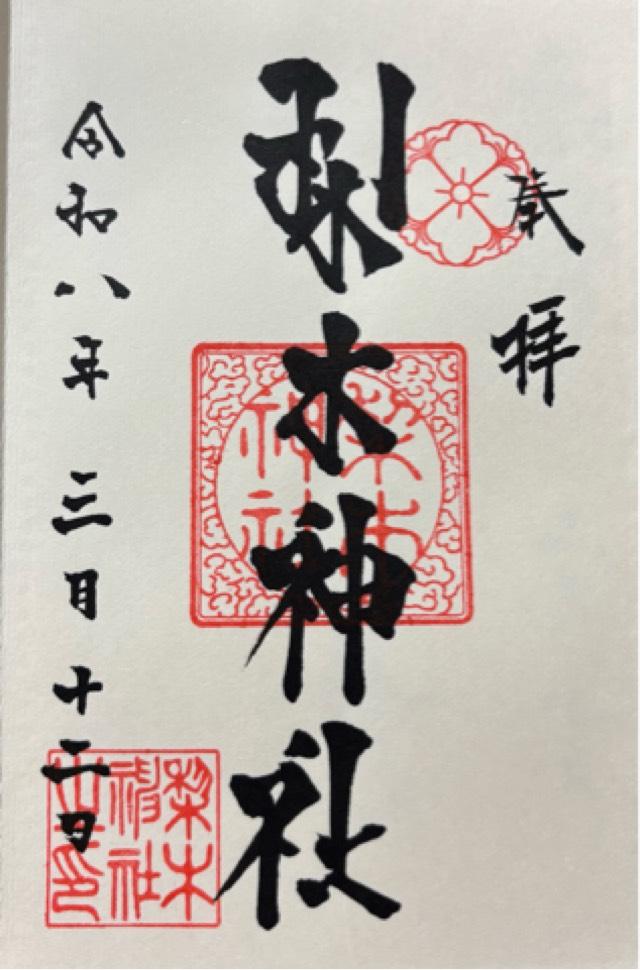 奉拝
梨木神社
令和八年三月十二日
梨木
神社
梨木
神社
之印